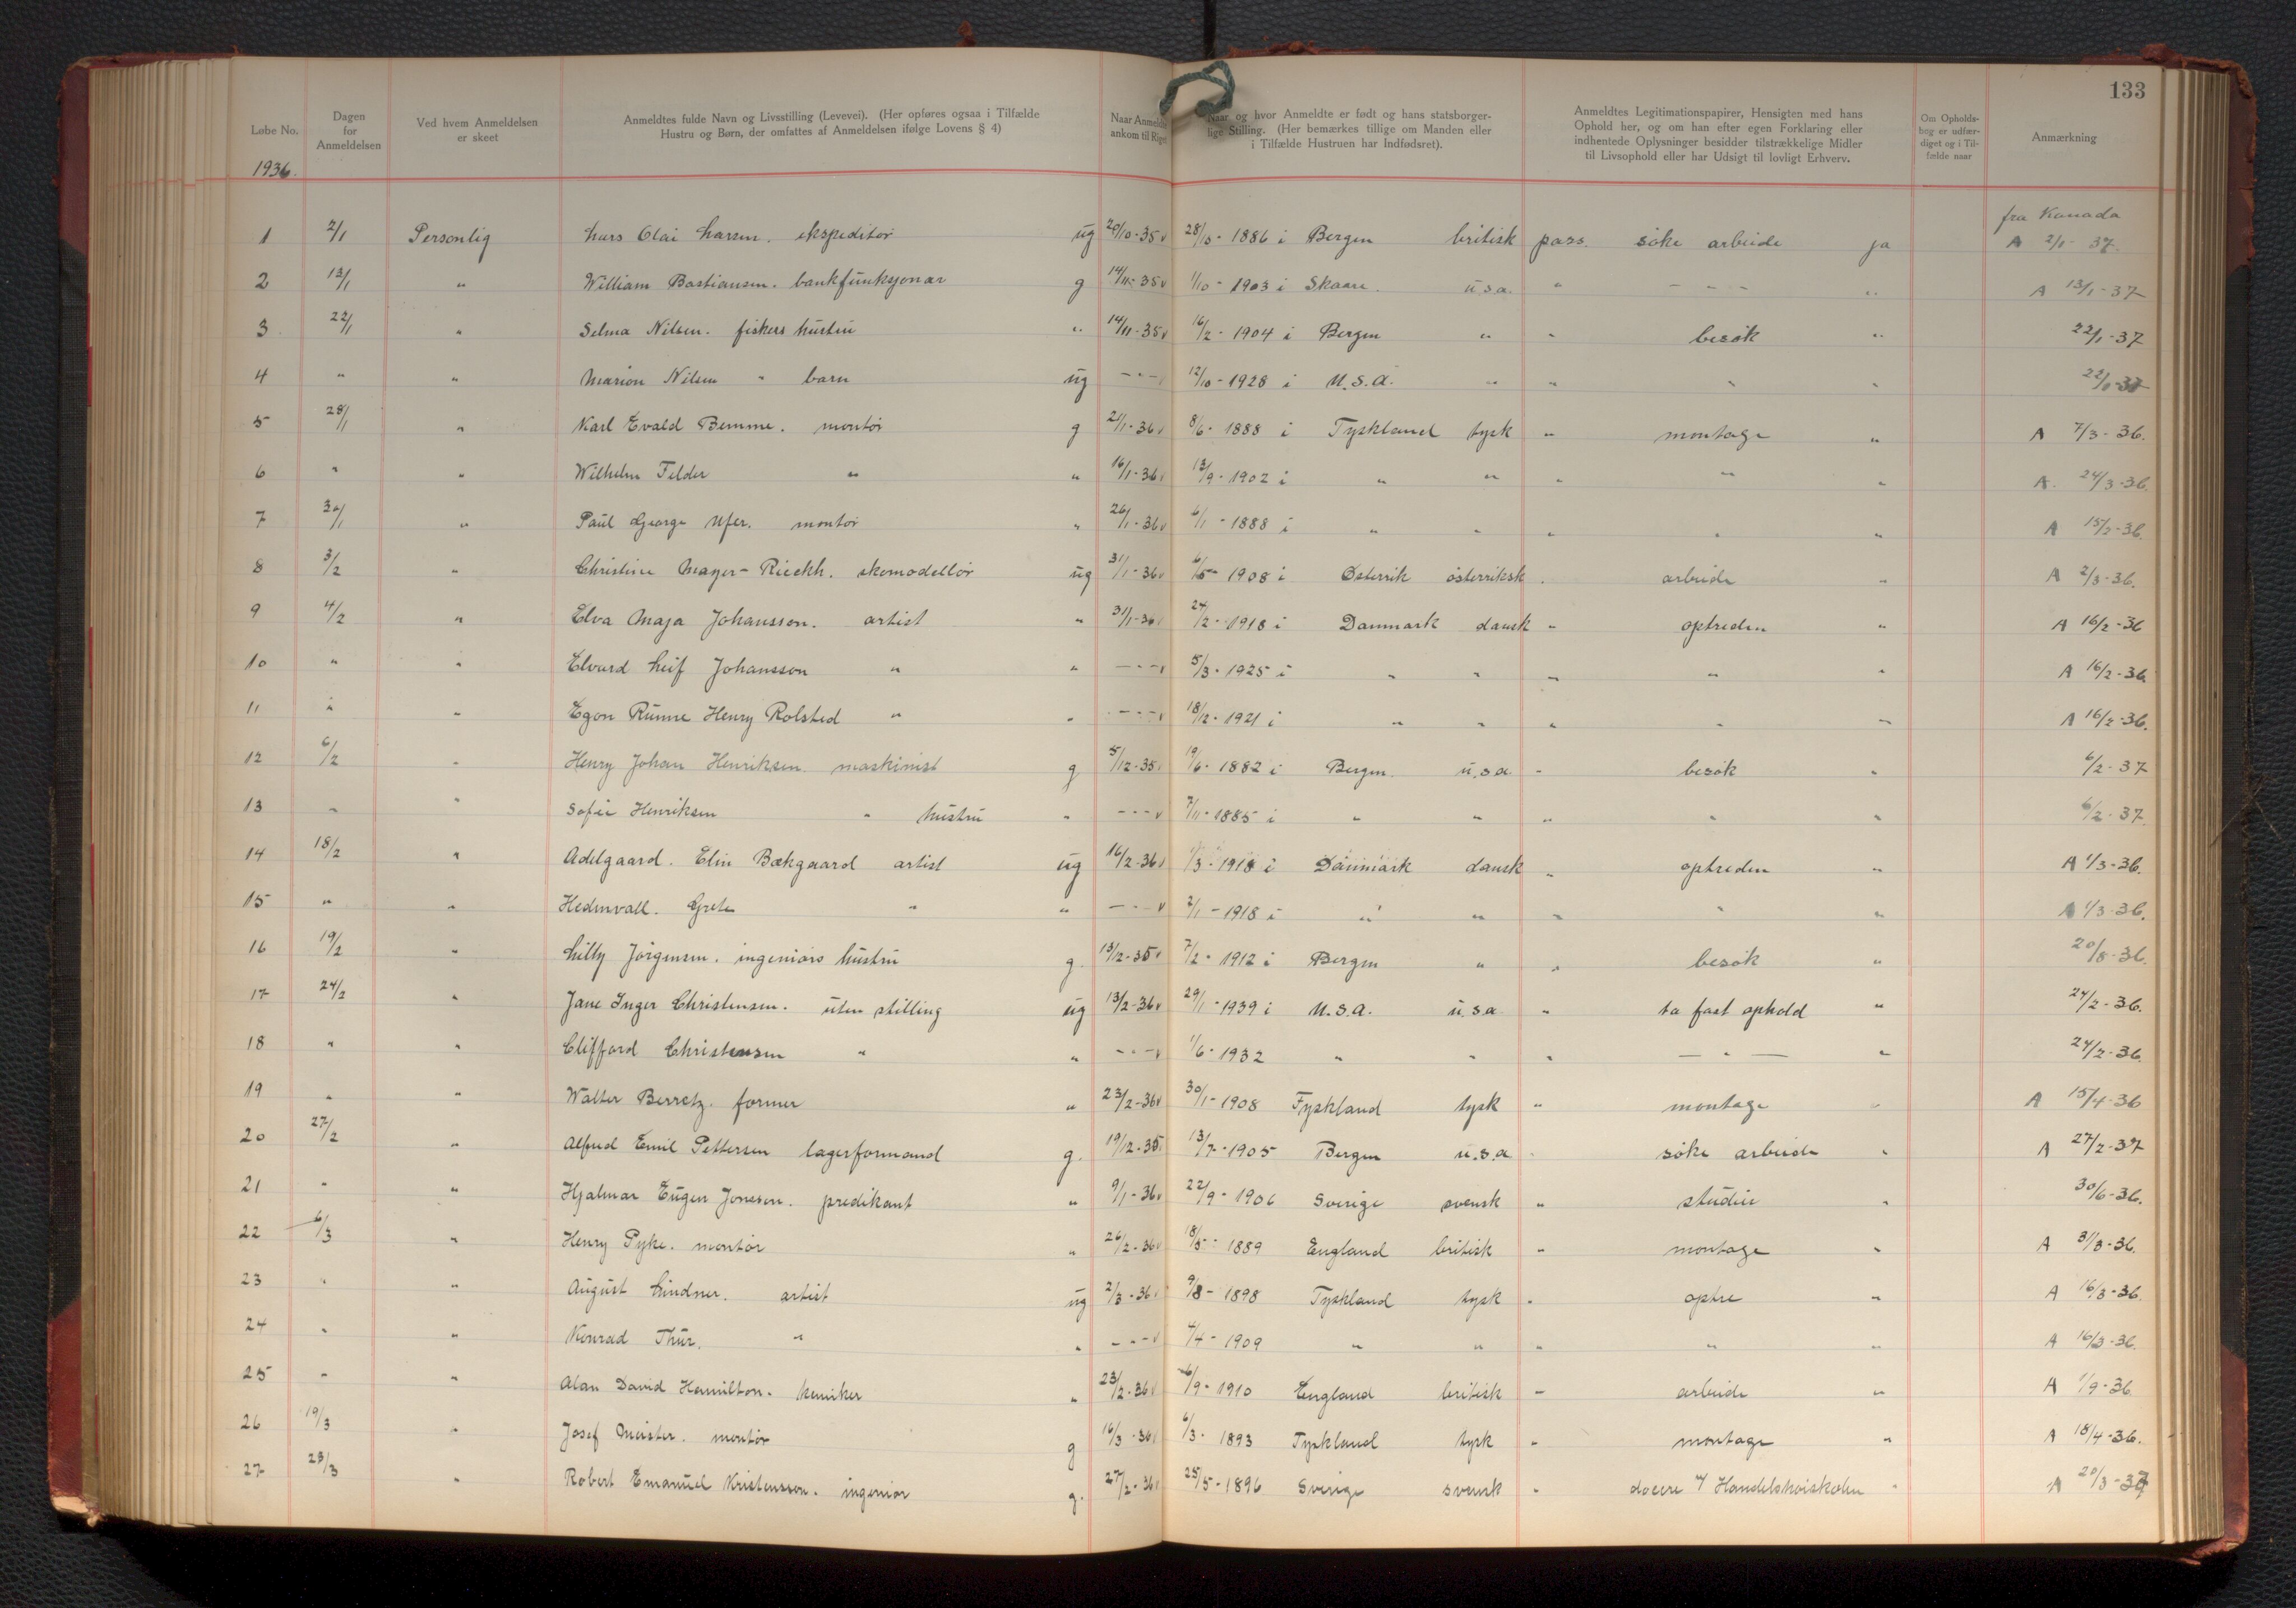 133
Løbe No.
Dagen for Anmeldelsen
Ved hvem Anmeldelsen er skeet
Anmeldtes fulde Navn og Livsstilling (Levevei). (Her opføres ogsaa i Tilfælde Hustru og Børn, der omfattes af Anmeldelsen ifølge Lovens § 4)
Naar Anmeldte ankom til Riget
Naar og hvor Anmeldte er født og hans statsborgerlige Stilling. (Her bemærkes tillige om Manden eller i Tilfælde Hustruen har Indfødsret).
Anmeldtes Legitimationspapirer, Hensigten med hans Ophold her, og om han efter egen Forklaring eller indhentede Oplysninger besidder tilstrækkelige Midler til Livsophold eller har Udsigt til lovligt Erhverv.
Om Opholdsbog er udfærdiget og i Tilfælde naar
Anmærkning
1936.
fra Kanada
1 2/1 Personlig Lars Olai Larsen. ekspeditør ug 20/10-35 v 28/10-1886 i Bergen britisk pass. søke arbeide ja A 2/1-37.
2 13/1 " William Bastiansen. bankfunksjonær g 14/11-35 v 1/10-1903 i Skaare. u.s.a. " - - - " A 13/1-37
3 22/1 " Selma Nilsen. fiskers hustru " 14/11-35 v 16/2-1904 i Bergen " " besøk " 22/1-37
4 " " Marion Nilsen " barn ug - " - v 12/10-1928 i U.S.A. " " " " 22/1-37
5 28/1 " Karl Evald Bemme. montør g 21/1-36 v 8/6-1888 i Tyskland tysk " montage " A 7/3-36.
6 " " Wilhelm Felder " " 16/1-36 v 13/9-1902 i " " " " " A. 24/3-36.
7 30/1 " Paul George Ufer. montør " 26/1-36 v 6/1-1888 i " " " " " A 15/2-36.
8 3/2 " Christine Mayer-Rieckh. skomodellør ug 31/1-36 v 6/5-1908 i Østerrik østerriksk " arbeide " A 2/3-36.
9 4/2 " Elva Maja Johansson. artist " 31/1-36 v 24/2-1918 i Danmark dansk " optreden " A 16/2-36
10 " " Elvard Leif Johansson " " - " - v 5/3-1925 i " " " " " A 16/2-36.
11 " " Egon Runne Henry Rolsted " " - " - v 18/12-1921 i " " " " " A 16/2-36.
12 6/2 " Henry Johan Henriksen maskinist g 5/12-35 v 19/6-1882 i Bergen. u.s.a " besøk " 6/2-37
13 " " Sofie Henriksen " hustru " - " - v 7/11-1885 i " " " " " 6/2-37.
14 18/2 " Adelgaard. Elin Bækgaard artist ug 16/2-36 v 1/3-1918 i Danmark dansk " optreden " A 1/3-36.
15 " " Hedenvall. Grete " " - " - v 2/1-1918 i " " " " " A 1/3-36.
16 19/2 " Lilly Jørgensen. ingeniørs hustru g. 13/12-35 v 7/2-1912 i Bergen " " besøk " 20/8-36.
17 24/2 " Jane Inger Christensen. uten stilling ug 13/2-36 v 29/1-1939 i U.S.A. u.s.a " ta fast ophold " 24/2-36.
18 " " Clifford Christensen " " - " - v 1/6-1932 " " " - " - " 24/2-36.
19 " " Walter Berretz. former " 23/2-36 v 30/1-1908 Tyskland tysk " montage " A 15/4-36
20 27/2 " Alfred Emil Pettersen lagerformand g. 19/12-35. 13/7-1905 Bergen u.s.a " søke arbeide " A 27/2-37
21 " " Hjalmar Eugen Jonesen. predikant " 9/1-36 v 22/9-1906 Sverige svensk " studie " 30/6-36.
22 6/3 " Henry Pyke. montør " 26/2-36 v 18/5-1889 England britisk " montage " A 31/3-36.
23 " " August Lindner. artist ug 2/3-36 v 9/8-1898 Tyskland tysk " optre " A 16/3-36
24 " " Konrad Thür. " " - " - v 4/4-1909 " " " " " A 16/3-36.
25 " " Alan David Hamilton. kemiker " 23/2-36 v 6/9-1910 England britisk " arbeide " A 1/9-36.
26 19/3 " Josef Meister. montør g 16/3-36 v 6/3-1893 Tyskland tysk " montage " A 18/4-36.
27 23/3 " Robert Emanuel Kristensson. ingeniør g. 27/2-36 v 25/5-1896 Sverige svensk " docere v/ Handelshøiskolen " A 20/3-37